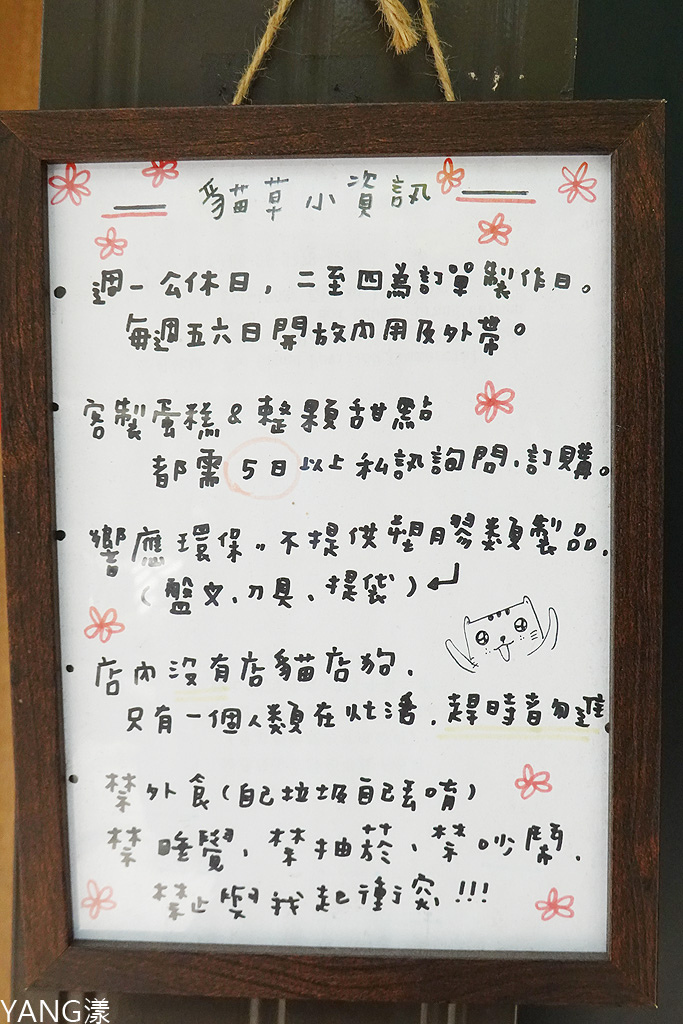 貓草小資訊
週一公休日，二至四為訂單製作日。
每週五六日開放內用及外帶。
客製蛋糕&整顆甜點
都需5日以上私訊詢問、訂購。
響應環保，不提供塑膠類製品，
（盤叉、刀具、提袋）
店內沒有店貓店狗，
只有一個人類在灶活，趕時者勿進。
禁外食（自己垃圾自己丟唷）
禁睡覺、禁抽菸、禁吵鬧，
禁止與我起衝突!!!
YANG漾